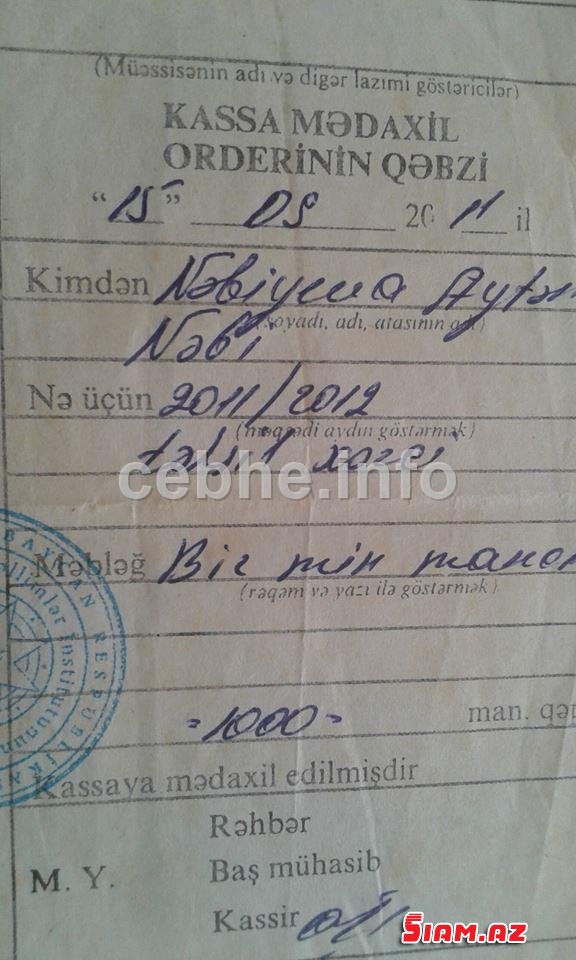 (Müəssisənin adı və digər lazımi göstəricilər)
KASSA MƏDAXİL
ORDERİNİN QƏBZİ
"15" 09 2011 il
Kimdən Nəbiyeva Aytən
(soyadı, adı, atasının adı)
Nəbi
Nə üçün 2011/2012
(məqsədi aydın göstərmək)
təhsil xərci
cebhe.info
Məbləğ Bir min manat
(rəqəm və yazı ilə göstərmək)
=1000= man. qəp
Kassaya mədaxil edilmişdir
Rəhbər
M. Y. Baş mühasib
Kassir
SİAM.AZ